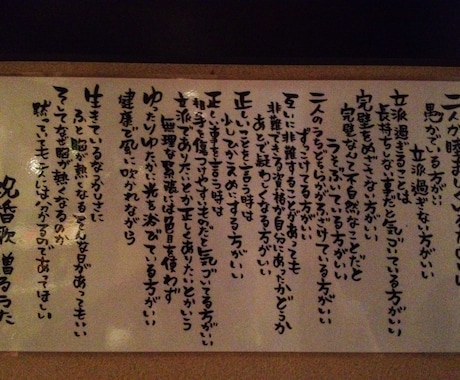 二人が睦まじくいるためには
愚かでいる方がいい
立派過ぎない方がいい
立派過ぎることは
長持ちしない事だと気づいている方がいい
完璧をめざさない方がいい
完璧なんて不自然なことだと
うそぶいている方がいい
二人のうちどちらかがふざけている方がいい
ずっこけている方がいい
互いに非難することがあっても
非難できる資格が自分にあったかどうか
あとで疑わしくなる方がいい
正しいことを言う時は
少しひかえめにする方がいい
正しい事を言う時は
相手を傷つけやすいものだと気づいている方がいい
立派でありたいとか正しくありたいとかいう
無理な緊張には色目を使わず
ゆったりゆたかに光を浴びている方がいい
健康で風に吹かれながら
生きているなつかしさに
ふと胸が熱くなるそんな日があってもいい
そしてなぜ胸が熱くなるのか
黙っていても二人には分かるのであってほしい
祝婚歌 贈るうた